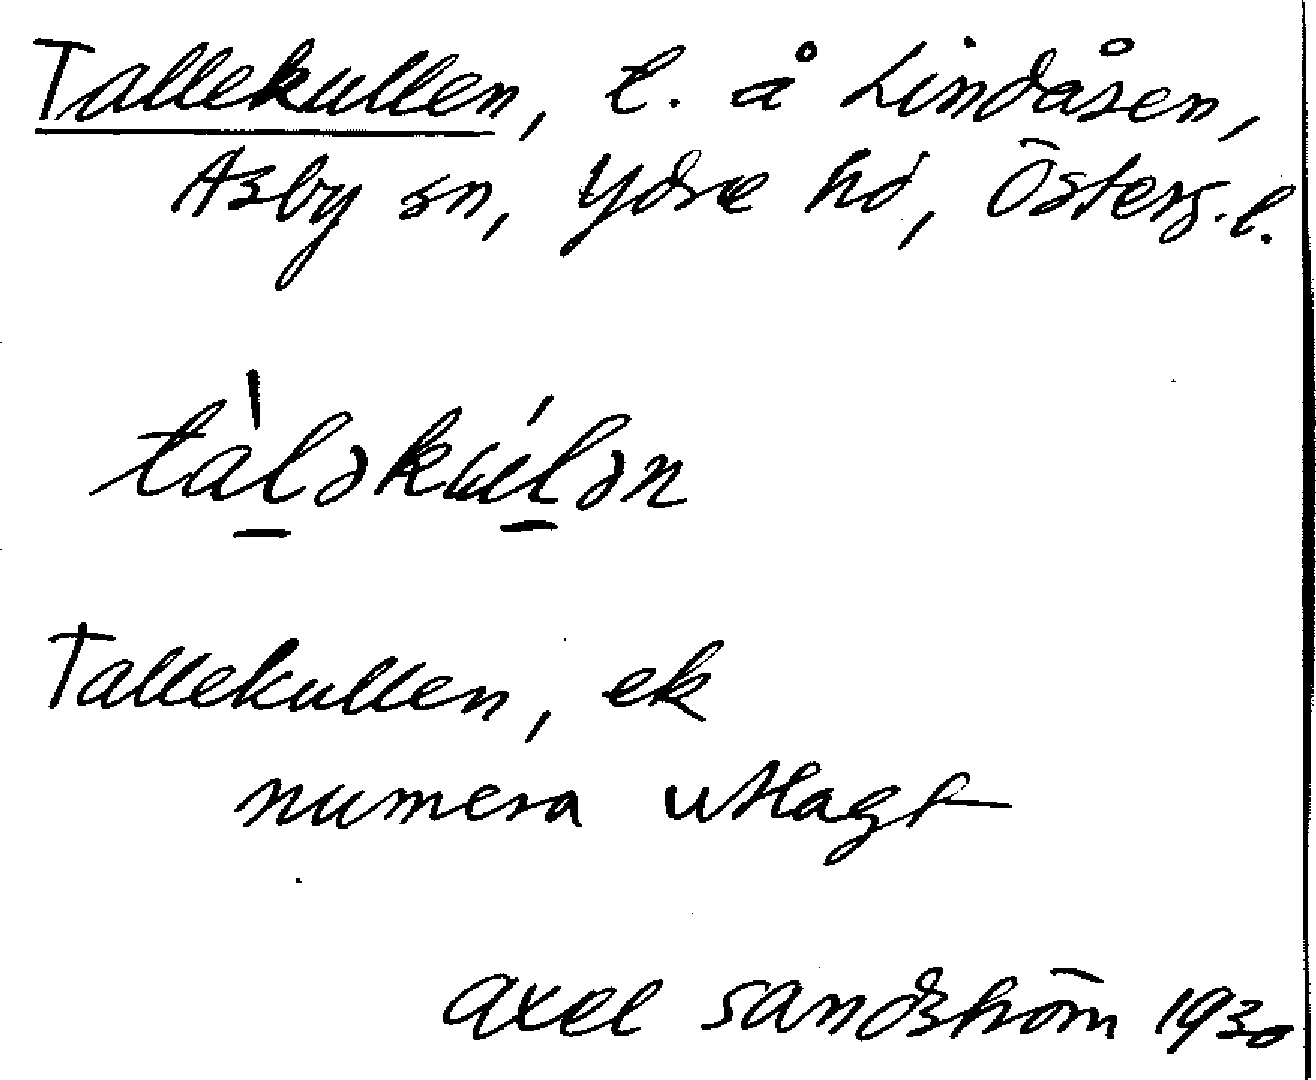 Tallekullen, l. å Lindåsen,
Asby sn, Ydre hd, Österg. l.
tàl̲əkúl̲ən
Tallekullen, ek
numera utlagt
Axel Sandström 1930